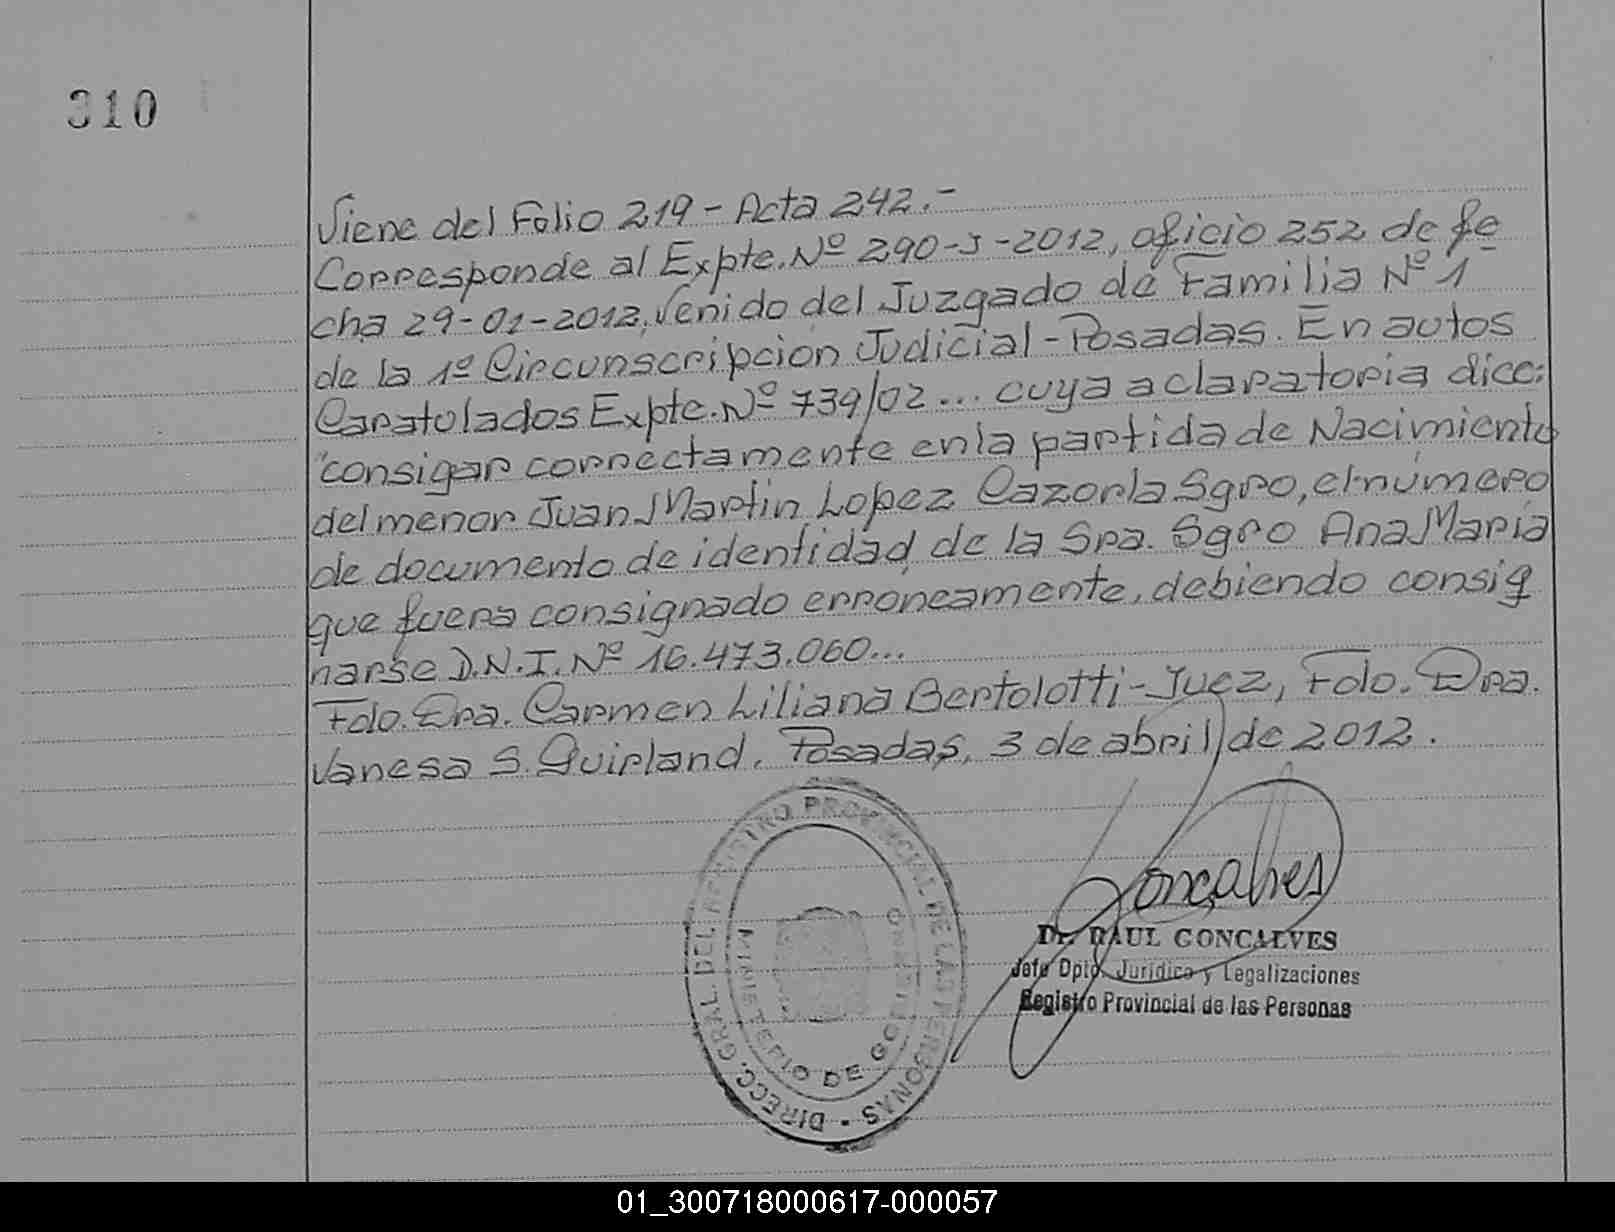 310
Viene del Folio 219 - Acta 242.-
Corresponde al Expte. Nº 290-J-2012, oficio 252 de fe
cha 29-01-2012, venido del Juzgado de Familia Nº 1
de la 1º Circunscripcion Judicial - Posadas. En autos
Caratulados Expte. Nº 739/02 ... cuya aclaratoria dice:
"consigar correctamente en la partida de Nacimiento
del menor Juan Martin Lopez Cazorla Sgro, el número
de documento de identidad de la Sra. Sgro Ana Maria
que fuera consignado erróneamente, debiendo consig
narse D.N.I. Nº 16.473.060...
Fdo. Dra. Carmen Liliana Bertolotti - Juez, Fdo. Dra.
Vanesa S. Guirland. Posadas, 3 de abril de 2012.
DIRECC. GRAL. DEL REGISTRO PROVINCIAL DE LAS PERSONAS -
MINISTERIO DE GOBIERNO
Goncalves
Dr. RAUL GONCALVES
Jefe Dpto. Jurídico y Legalizaciones
Registro Provincial de las Personas
01_300718000617-000057